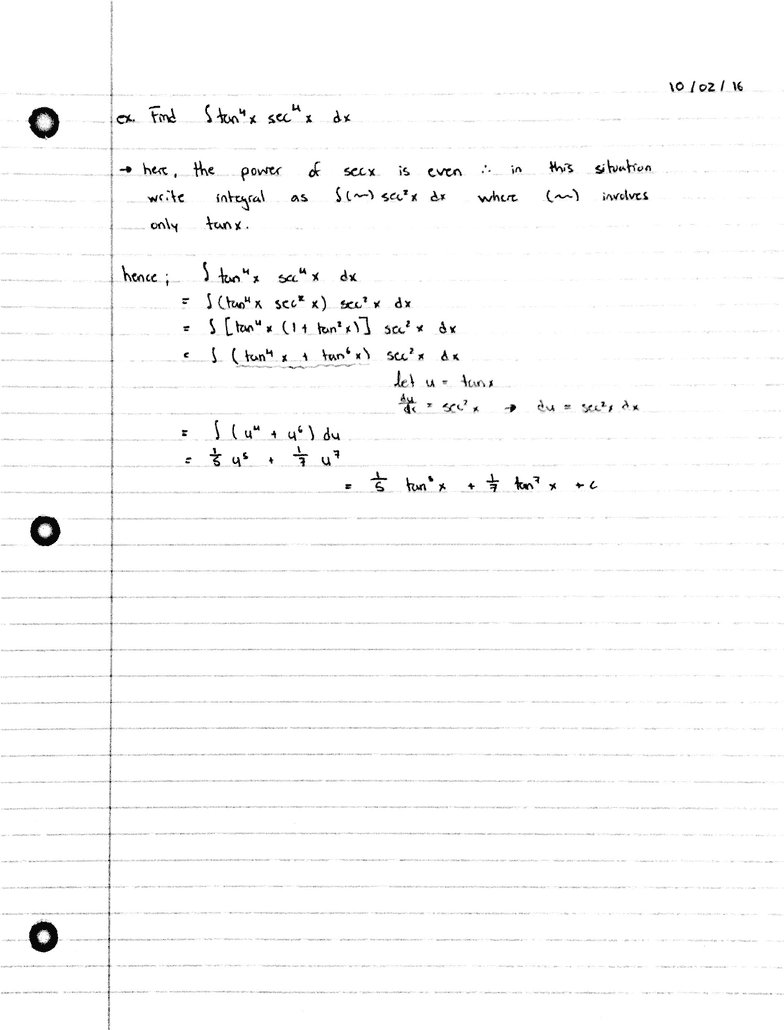 10/02/16
ex. Find ∫tan⁴x sec⁴x dx
→ here, the power of secx is even ∴ in this situation
write integral as ∫(~) sec²x dx where (~) involves
only tanx.
hence; ∫ tan⁴x sec⁴x dx
= ∫(tan⁴x sec²x) sec²x dx
= ∫ [tan⁴x (1 + tan²x)] sec²x dx
= ∫ (tan⁴x + tan⁶x) sec²x dx
let u = tanx
du/dx = sec²x → du = sec²x dx
= ∫ (u⁴ + u⁶) du
= 1/5 u⁵ + 1/7 u⁷
= 1/5 tan⁵x + 1/7 tan⁷x + c